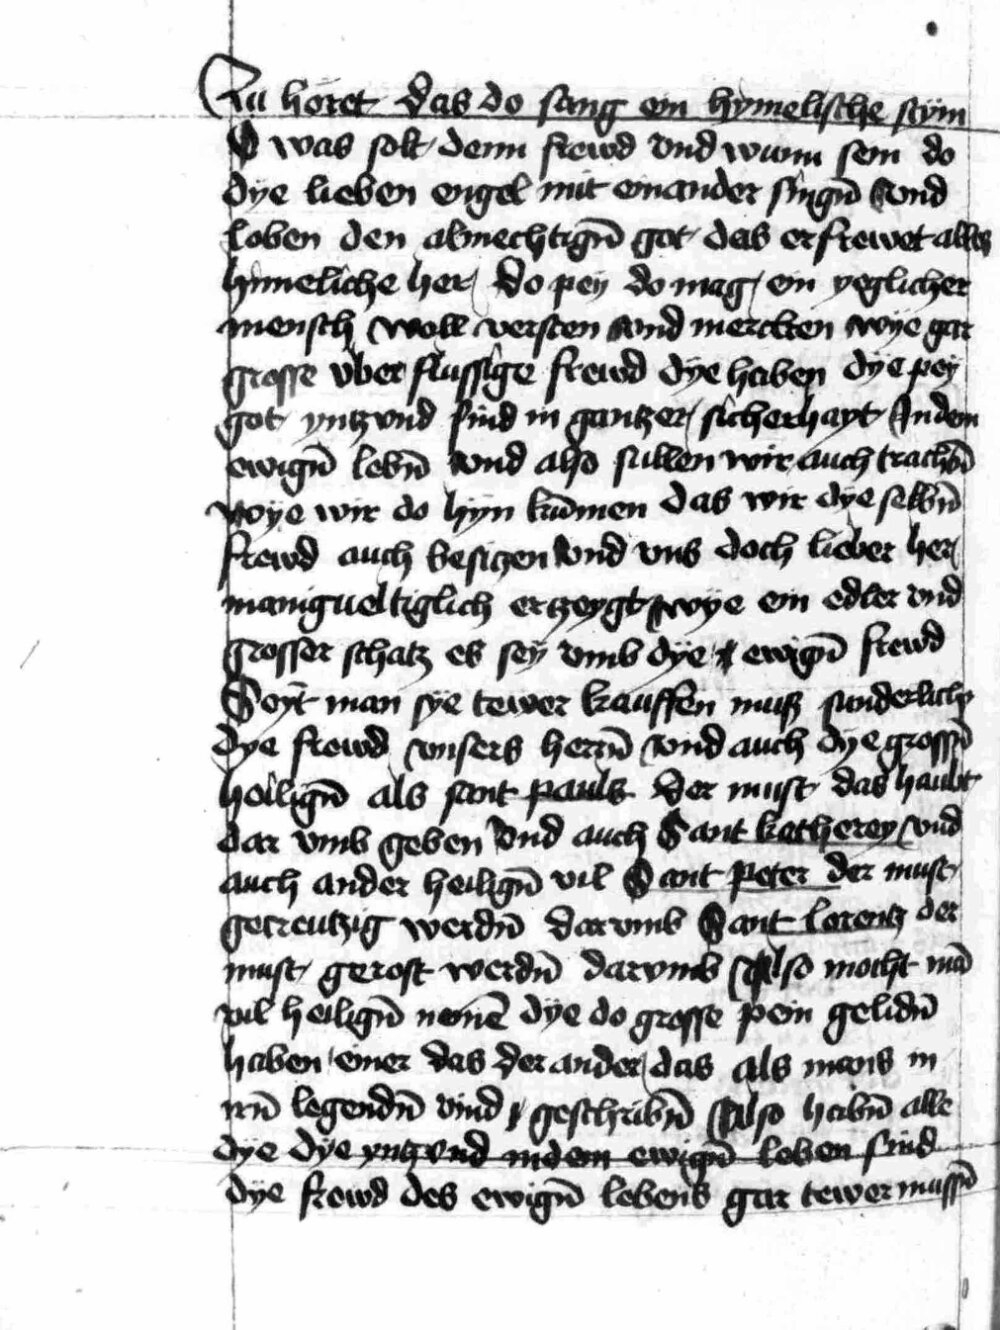 Nu höret das do sang ein hymelische stym
O was solt denn frewd vnd wunn sein do
dye lieben engel mit einander singn̄ vnd
loben den almechtign̄ got das erfrewet alles
himelische her do pey do mag ein yeglicher
mensch woll versten vnd mercken wye gar
grosse vber flussige frewd dye haben dye pey
got yntzvnd sind in gantzer sicherhayt Indem
ewign̄ lebn̄ vnd also sullen wir auch trachtn̄
wye wir do hyn kūmen das wir dye selbn̄
frewd auch besiczen vnd vns doch lieber her
manigueltiglich ertzeygt wye ein edler vnd
grosser schatz es sey vmb dye ewign̄ frewd
Seyt man sye tewer kauffen muß sunderlich
dye frewd vnsers herrn̄ vnd auch dye grossn̄
heilign̄ als sant pauls der must das haubt
dar vmb geben vnd auch Sant katherey vnd
auch ander heilign̄ vil Sant Peter der must
gecreutzig werdn̄ darvmb Sant lorentz der
must gerost werdn̄ darvmb Also mocht mā
vil heilign̄ nenē dye do grosse pein gelidn̄
haben einer das der ander das als mans in
irn̄ legendn̄ vind geschribn̄ Also habn̄ alle
dye dye yntzvnd indem ewign̄ leben sind
dye frewd des ewign̄ lebens gar tewer mussn̄